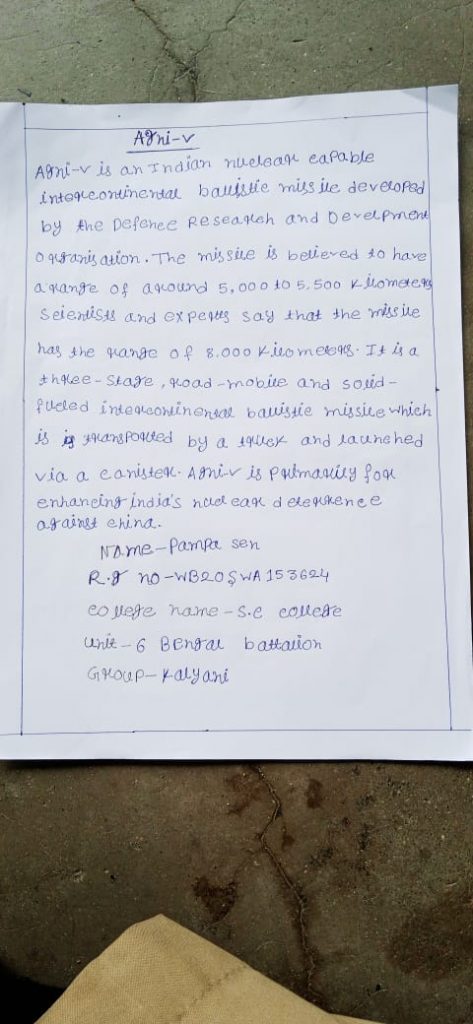 Agni-v
Agni-v is an Indian nuclear capable
intercontinental ballistic missile developed
by the Defence Research and Develpment
organisation. The missile is believed to have
a range of around 5,000 to 5,500 kilometers
Scientists and experts say that the missile
has the range of 8,000 kilometers. It is a
three-stage, road-mobile and solid-
fueled intercontinental ballistic missile which
is is transported by a truck and launched
via a canister. Agni-v is primarily for
enhancing india's nuclear deterrence
against china.
Name-Pampa sen
R.g no-WB20SWA153624
college name-S.C college
unit-6 Bengal battalion
Group-Kalyani